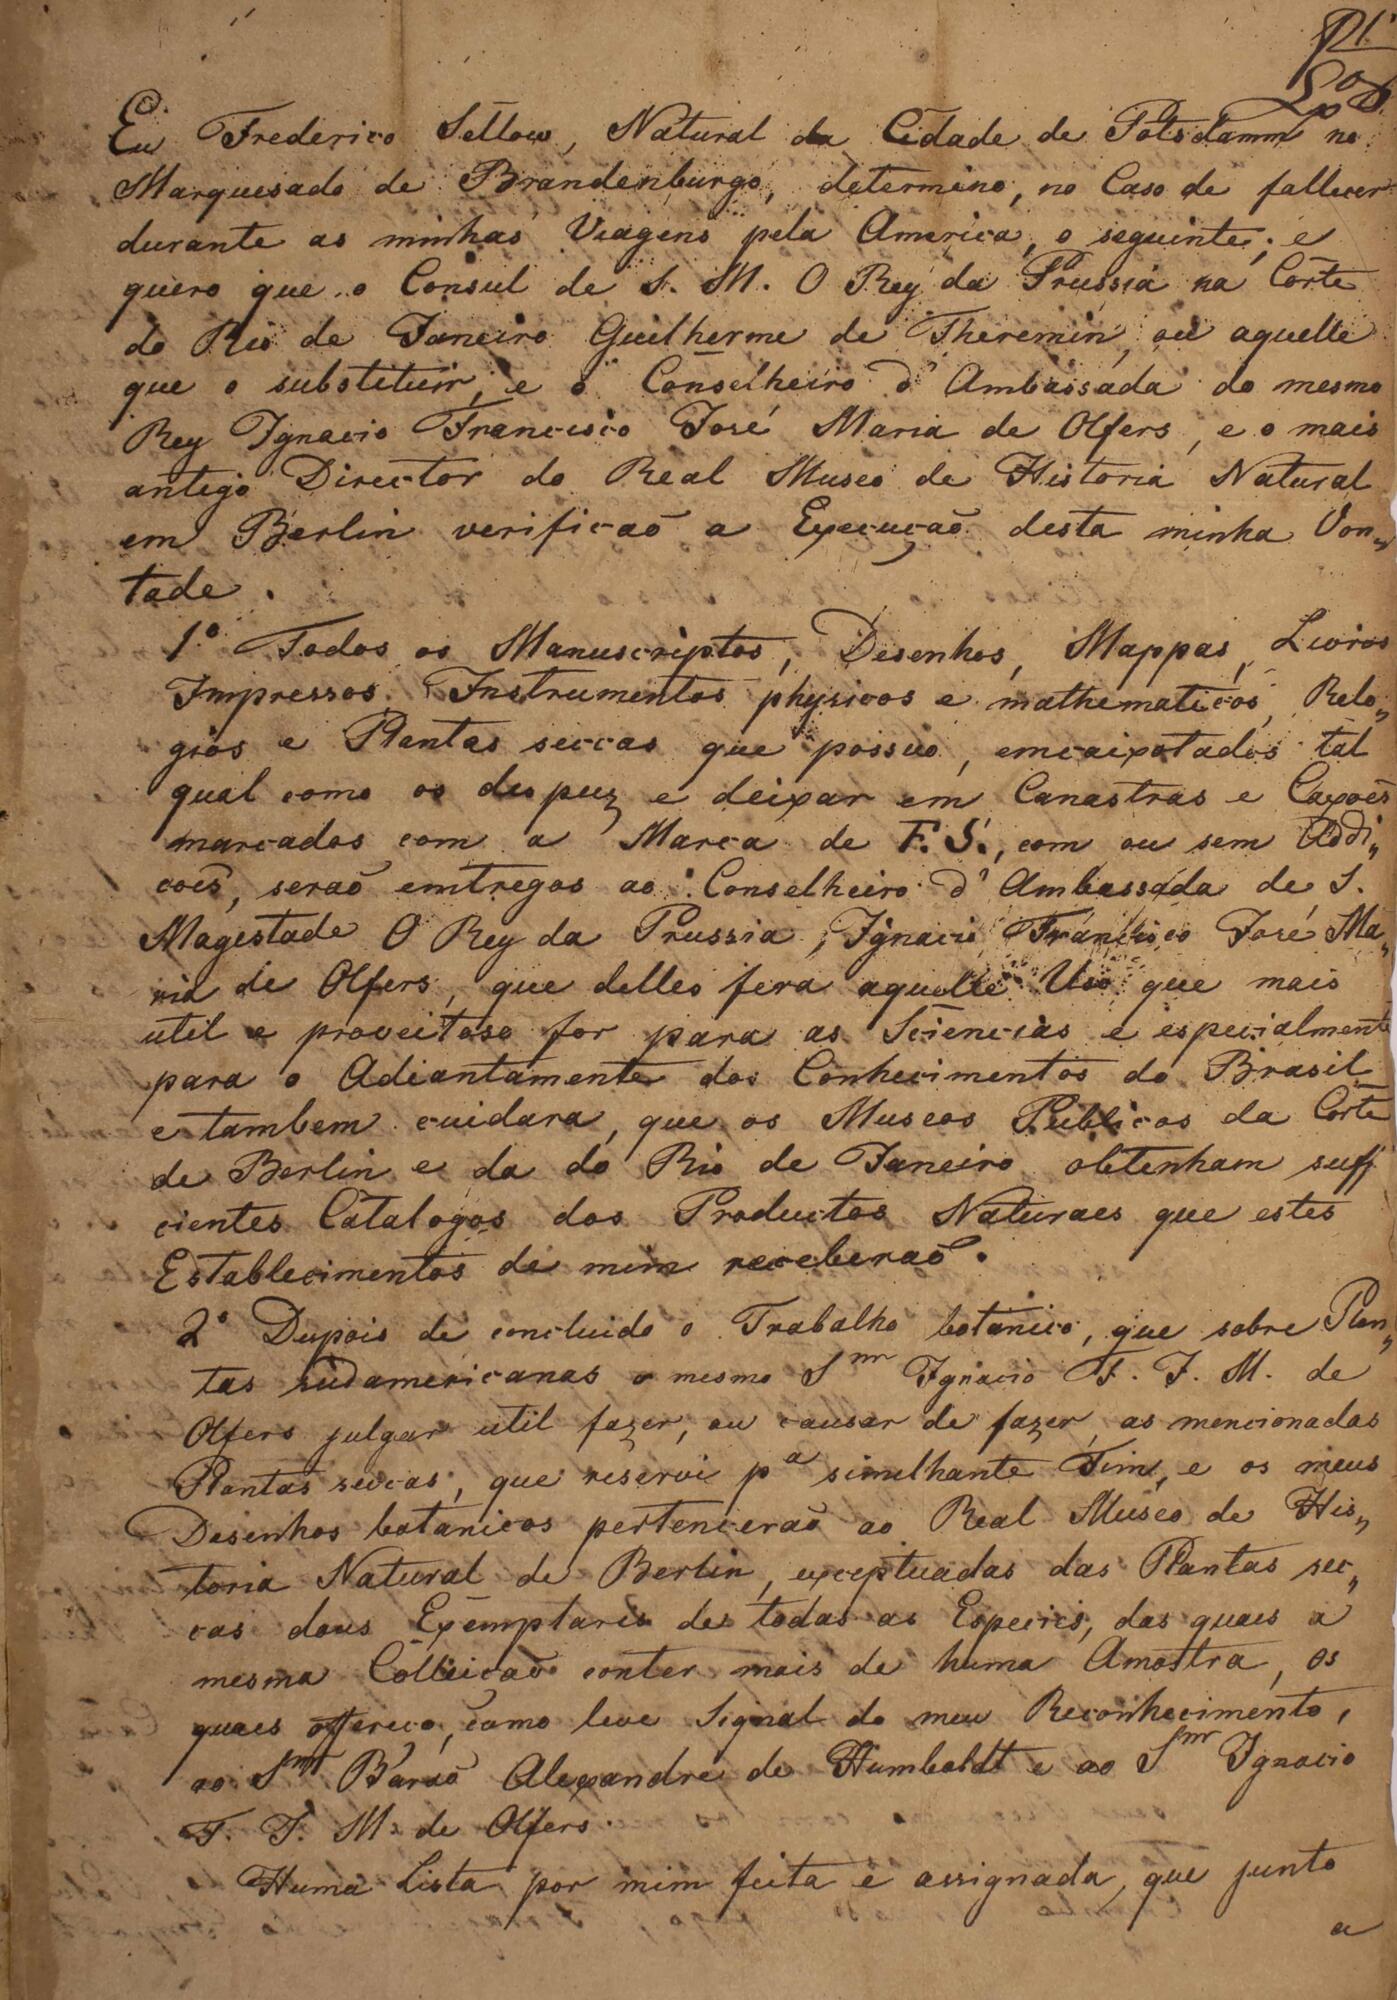 Eu Frederico Sellow, Natural da Cidade de Potsdamm no
Marquesado de Brandenburgo, determino, no Caso de fallecer
durante as minhas Viagens pela America, o seguinte; e
quero que o Consul de S. M. O Rey da Prussia na Côrte
do Rio de Janeiro Guilherme de Theremin, ou aquelle
que o substituir, e o Conselheiro d'Ambassada do mesmo
Rey Ignacio Francisco José Maria de Olfers, e o mais
antigo Director do Real Museo de Historia Natural
em Berlin verificaõ a Execuçaõ desta minha Von„
tade.
1.º Todos os Manuscriptos, Desenhos, Mappas, Livros
Impressos, Instrumentos physicos e mathematicos, Relo„
gios e Plantas seccas que possuo, emcaixotados tal
qual como os despuz e deixar em Canastras e Caxoẽs
marcados com a Marca de F. S., com ou sem Addi„
coẽs, seraõ emtregos ao Conselheiro d'Ambassada de S.
Magestade O Rey da Prussia, Ignacio Francisco José Ma„
ria de Olfers, que delles fera aquelle Uso que mais
util e proveitoso for para as Sciencias e especialmente
para o Adiantamento dos Conhecimentos do Brasil
e tambem cuidara, que os Museos Publicos da Côrte
de Berlin e da do Rio de Janeiro obtenham suffi
cientes Catalogos dos Productos Naturaes que estes
Establecimentos de mim receberaõ.
2º Depois de concluido o Trabalho botanico, que sobre Plan„
tas sudamericanas o mesmo Snr Ignacio F. J. M. de
Olfers julgar util fazer, ou causar de fazer, as mencionadas
Plantas seccas, que reservi pa similhante Fim, e os meus
Desenhos botanicos pertenceraõ ao Real Museo de His„
toria Natural de Berlin, exceptuadas das Plantas sec„
cas dous Exemplares de todas as Especies, das quaes a
mesma Colleicaõ conter mais de huma Amostra, os
quaes offereço, como leve Signal do meu Reconhecimento,
ao Snr Baraõ Alexandre de Humboldt e ao Snr Ignacio
F. J. M. de Olfers.
Huma Lista por mim feita e assignada, que junto
a